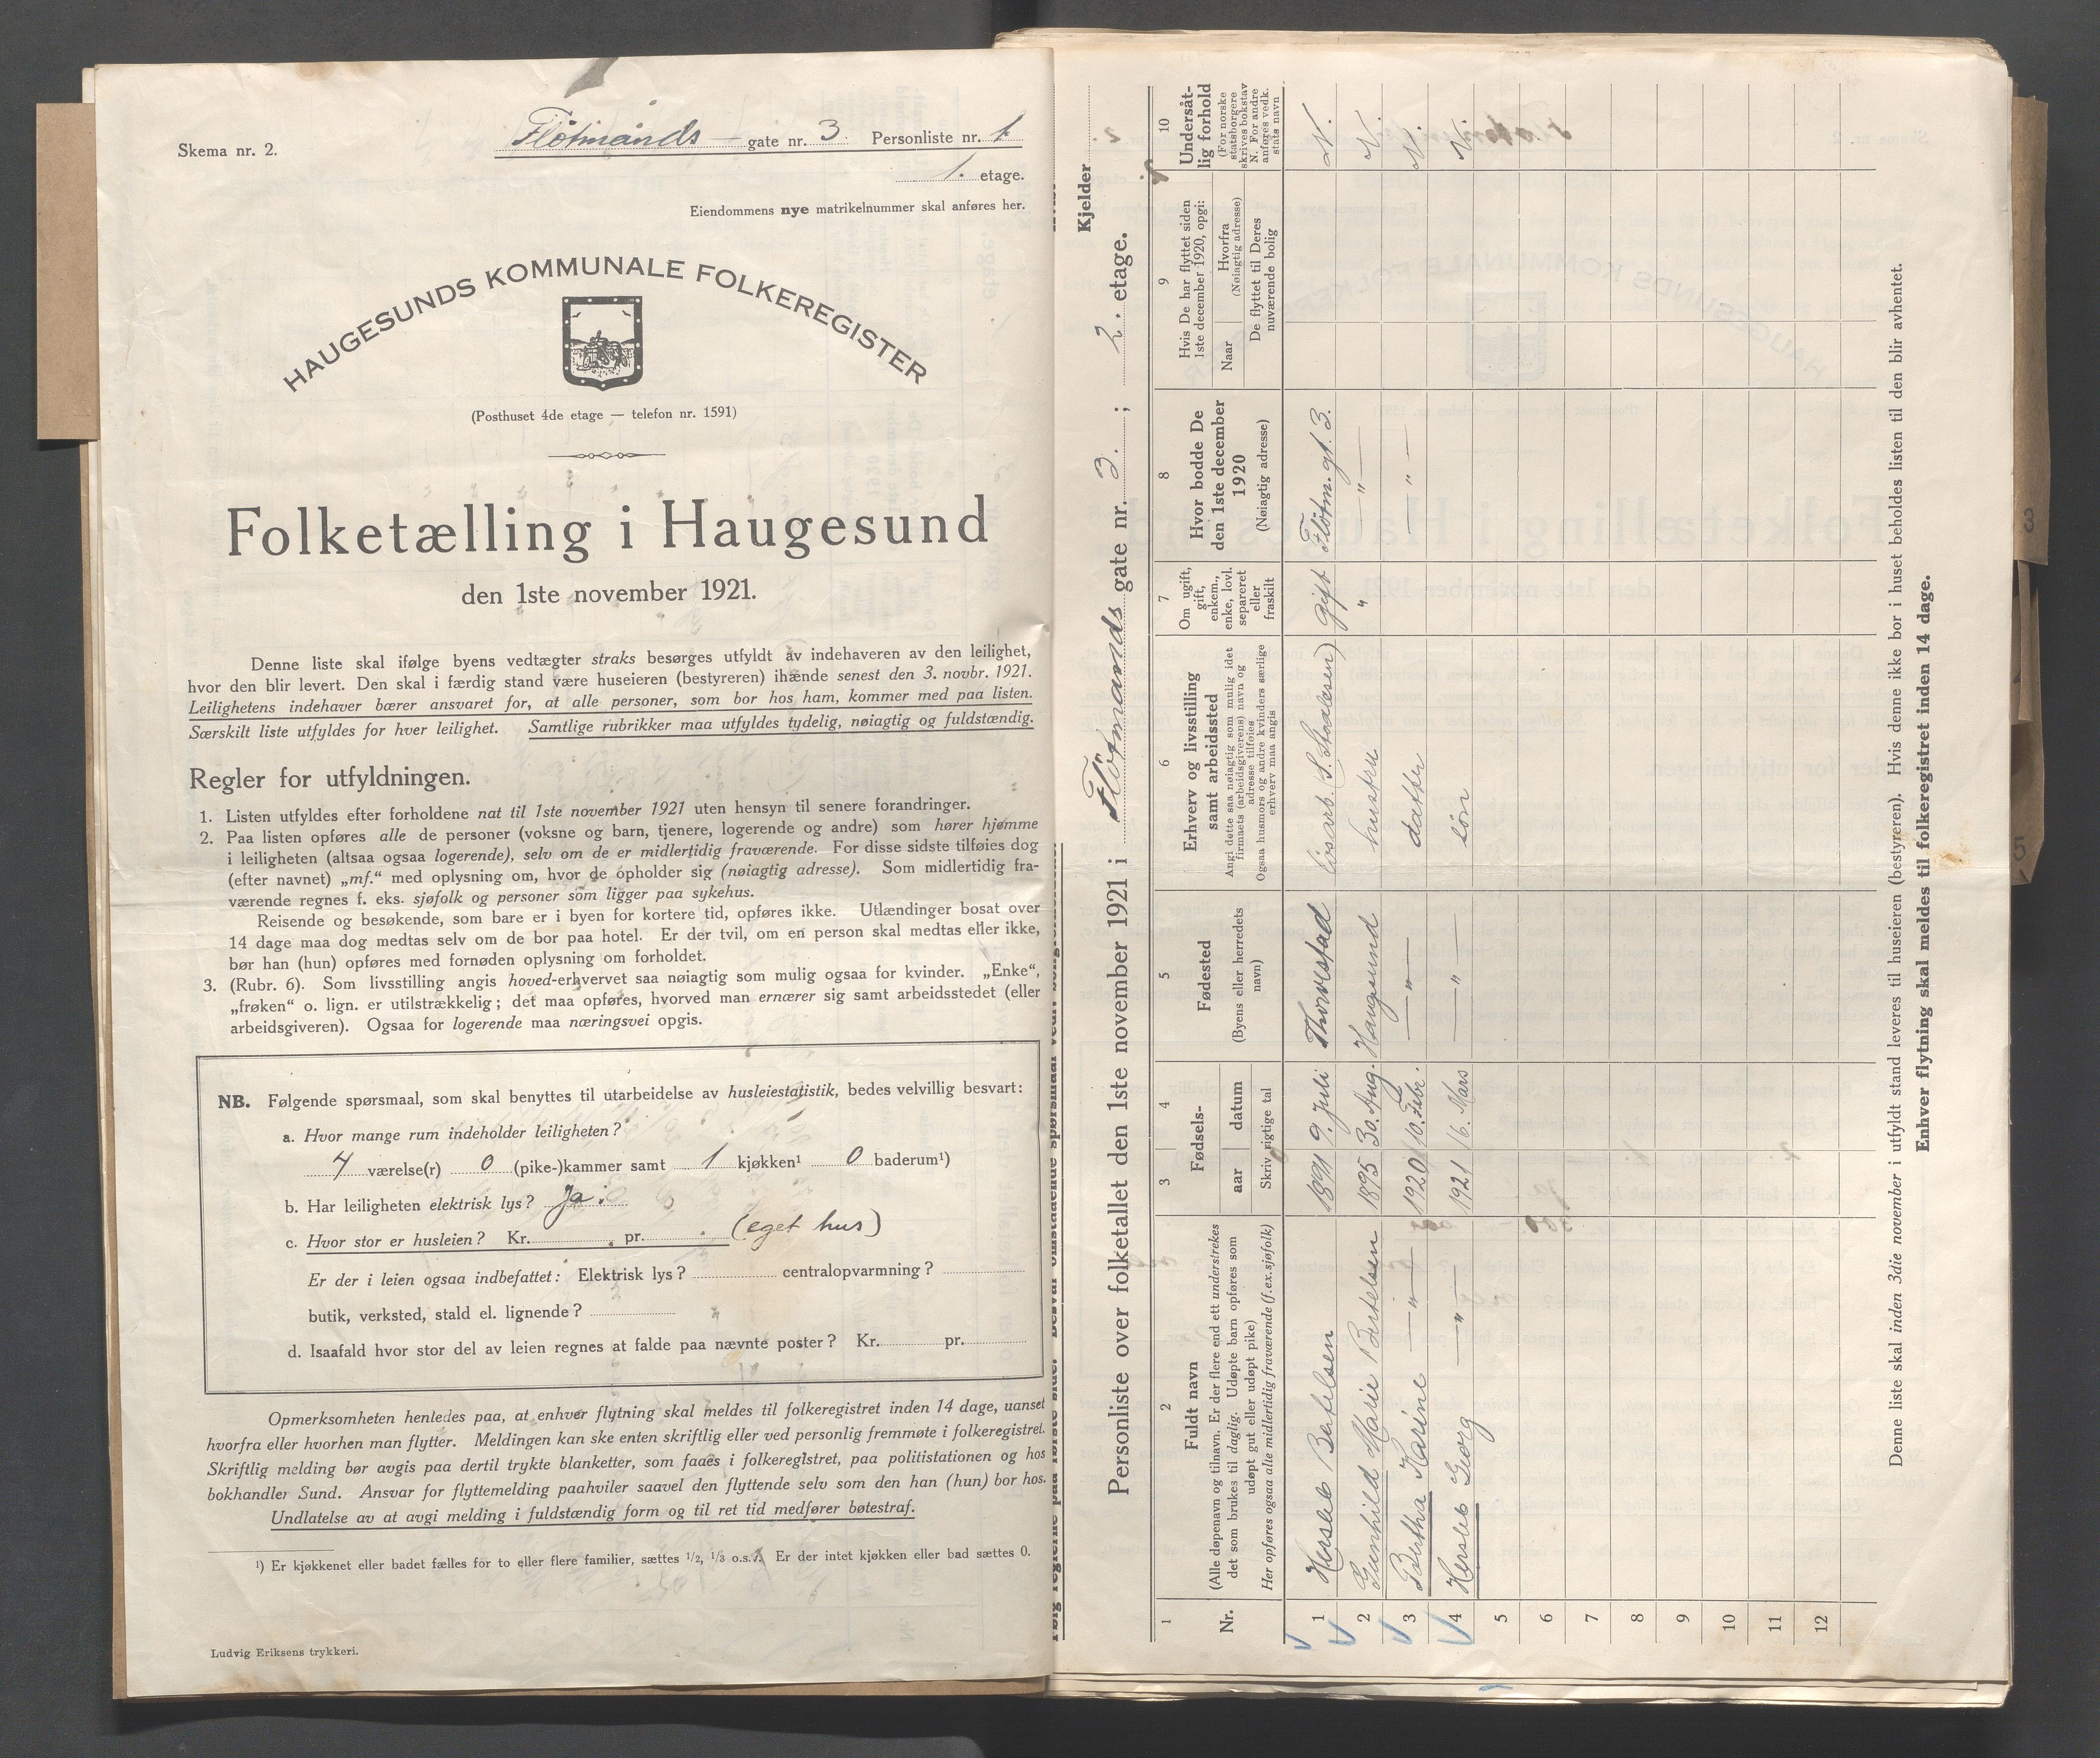 Skema nr. 2.
Flötmands gate nr. 3. Personliste nr. 1.
1. etage.
Eiendommens nye matrikelnummer skal anføres her.
HAUGESUNDS KOMMUNALE FOLKEREGISTER
(Posthuset 4de etage — telefon nr. 1591)
Folketælling i Haugesund
den 1ste november 1921.
Denne liste skal ifølge byens vedtægter straks besørges utfyldt av indehaveren av den leilighet,
hvor den blir levert. Den skal i færdig stand være huseieren (bestyreren) ihænde senest den 3. novbr. 1921.
Leilighetens indehaver bærer ansvaret for, at alle personer, som bor hos ham, kommer med paa listen.
Særskilt liste utfyldes for hver leilighet. Samtlige rubrikker maa utfyldes tydelig, nøiagtig og fuldstændig.
Regler for utfyldningen.
1. Listen utfyldes efter forholdene nat til 1ste november 1921 uten hensyn til senere forandringer.
2. Paa listen opføres alle de personer (voksne og barn, tjenere, logerende og andre) som hører hjemme
i leiligheten (altsaa ogsaa logerende), selv om de er midlertidig fraværende. For disse sidste tilføies dog
(efter navnet) „mf.“ med oplysning om, hvor de opholder sig (nøiagtig adresse). Som midlertidig fra-
værende regnes f. eks. sjøfolk og personer som ligger paa sykehus.
Reisende og besøkende, som bare er i byen for kortere tid, opføres ikke. Utlændinger bosat over
14 dage maa dog medtas selv om de bor paa hotel. Er der tvil, om en person skal medtas eller ikke,
bør han (hun) opføres med fornøden oplysning om forholdet.
3. (Rubr. 6). Som livsstilling angis hoved-erhvervet saa nøiagtig som mulig ogsaa for kvinder. „Enke“,
„frøken“ o. lign. er utilstrækkelig; det maa opføres, hvorved man ernærer sig samt arbeidsstedet (eller
arbeidsgiveren). Ogsaa for logerende maa næringsvei opgis.
NB. Følgende spørsmaal, som skal benyttes til utarbeidelse av husleiestatistik, bedes velvillig besvart:
a. Hvor mange rum indeholder leiligheten?
4 værelse(r) 0 (pike-)kammer samt 1 kjøkken¹ 0 baderum¹)
b. Har leiligheten elektrisk lys? Ja.
c. Hvor stor er husleien? Kr. pr. (eget hus)
Er der i leien ogsaa indbefattet: Elektrisk lys? centralopvarmning?
butik, verksted, stald el. lignende?
d. Isaafald hvor stor del av leien regnes at falde paa nævnte poster? Kr. pr.
Opmerksomheten henledes paa, at enhver flytning skal meldes til folkeregistret inden 14 dage, uanset
hvorfra eller hvorhen man flytter. Meldingen kan ske enten skriftlig eller ved personlig fremmøte i folkeregistret.
Skriftlig melding bør avgis paa dertil trykte blanketter, som faaes i folkeregistret, paa politistationen og hos
bokhandler Sund. Ansvar for flyttemelding paahviler saavel den flyttende selv som den han (hun) bor hos.
Undlatelse av at avgi melding i fuldstændig form og til ret tid medfører bøtestraf.
¹) Er kjøkkenet eller badet fælles for to eller flere familier, sættes 1/2, 1/3 o.s.v. Er der intet kjøkken eller bad sættes 0.
Ludvig Eriksens trykkeri.
Kjelder
Personliste over folketallet den 1ste november 1921 i Flötmands gate nr. 3. ; 2. etage.
1 2 3 4 5 6 7 8 9 10
Nr.
Fuldt navn
(Alle døpenavn og tilnavn. Er der flere end ett understrekes
det som brukes til daglig. Udøpte barn opføres som
udøpt gut eller udøpt pike)
Her opføres ogsaa alle midlertidig fraværende (f.ex. sjøfolk)
Fødsels-
aar datum
Skriv rigtige tal
Fødested
(Byens eller herredets
navn)
Erhverv og livsstilling
samt arbeidssted
Angi dette saa nøiagtig som mulig idet
firmaets (arbeidsgiverens) navn og
adresse tilføies
Ogsaa husmors og andre kvinders særlige
erhverv maa angis
Om ugift,
gift,
enkem.,
enke, lovl.
separeret
eller
fraskilt
Hvor bodde De
den 1ste december
1920
(Nøiagtig adresse)
Hvis De har flyttet siden
1ste december 1920, opgi:
Naar
Hvorfra
(Nøiagtig adresse)
De flyttet til Deres
nuværende bolig
Undersåt-
lig forhold
(For norske
statsborgere
skrives bokstav
N. For andre
anføres vedk.
stats navn
1 Hersleb Bertelsen 1891 9. Juli Thorvestad løsarb. (S. Staalesen) gift Flötm. gt. 3. N.
2 Gunhild Marie Bertelsen 1895 30. Aug. Haugesund hustru " — " — N.
3 Bertha Karine — " — 1920 10. Febr. — " — datter — " — N.
4 Hersleb Georg — " — 1921 16. Mars — " — sön N.
5
6
7
8
9
10
11
12
Denne liste skal inden 3die november i utfyldt stand leveres til huseieren (bestyreren). Hvis denne ikke bor i huset beholdes listen til den blir avhentet.
Enhver flytning skal meldes til folkeregistret inden 14 dage.